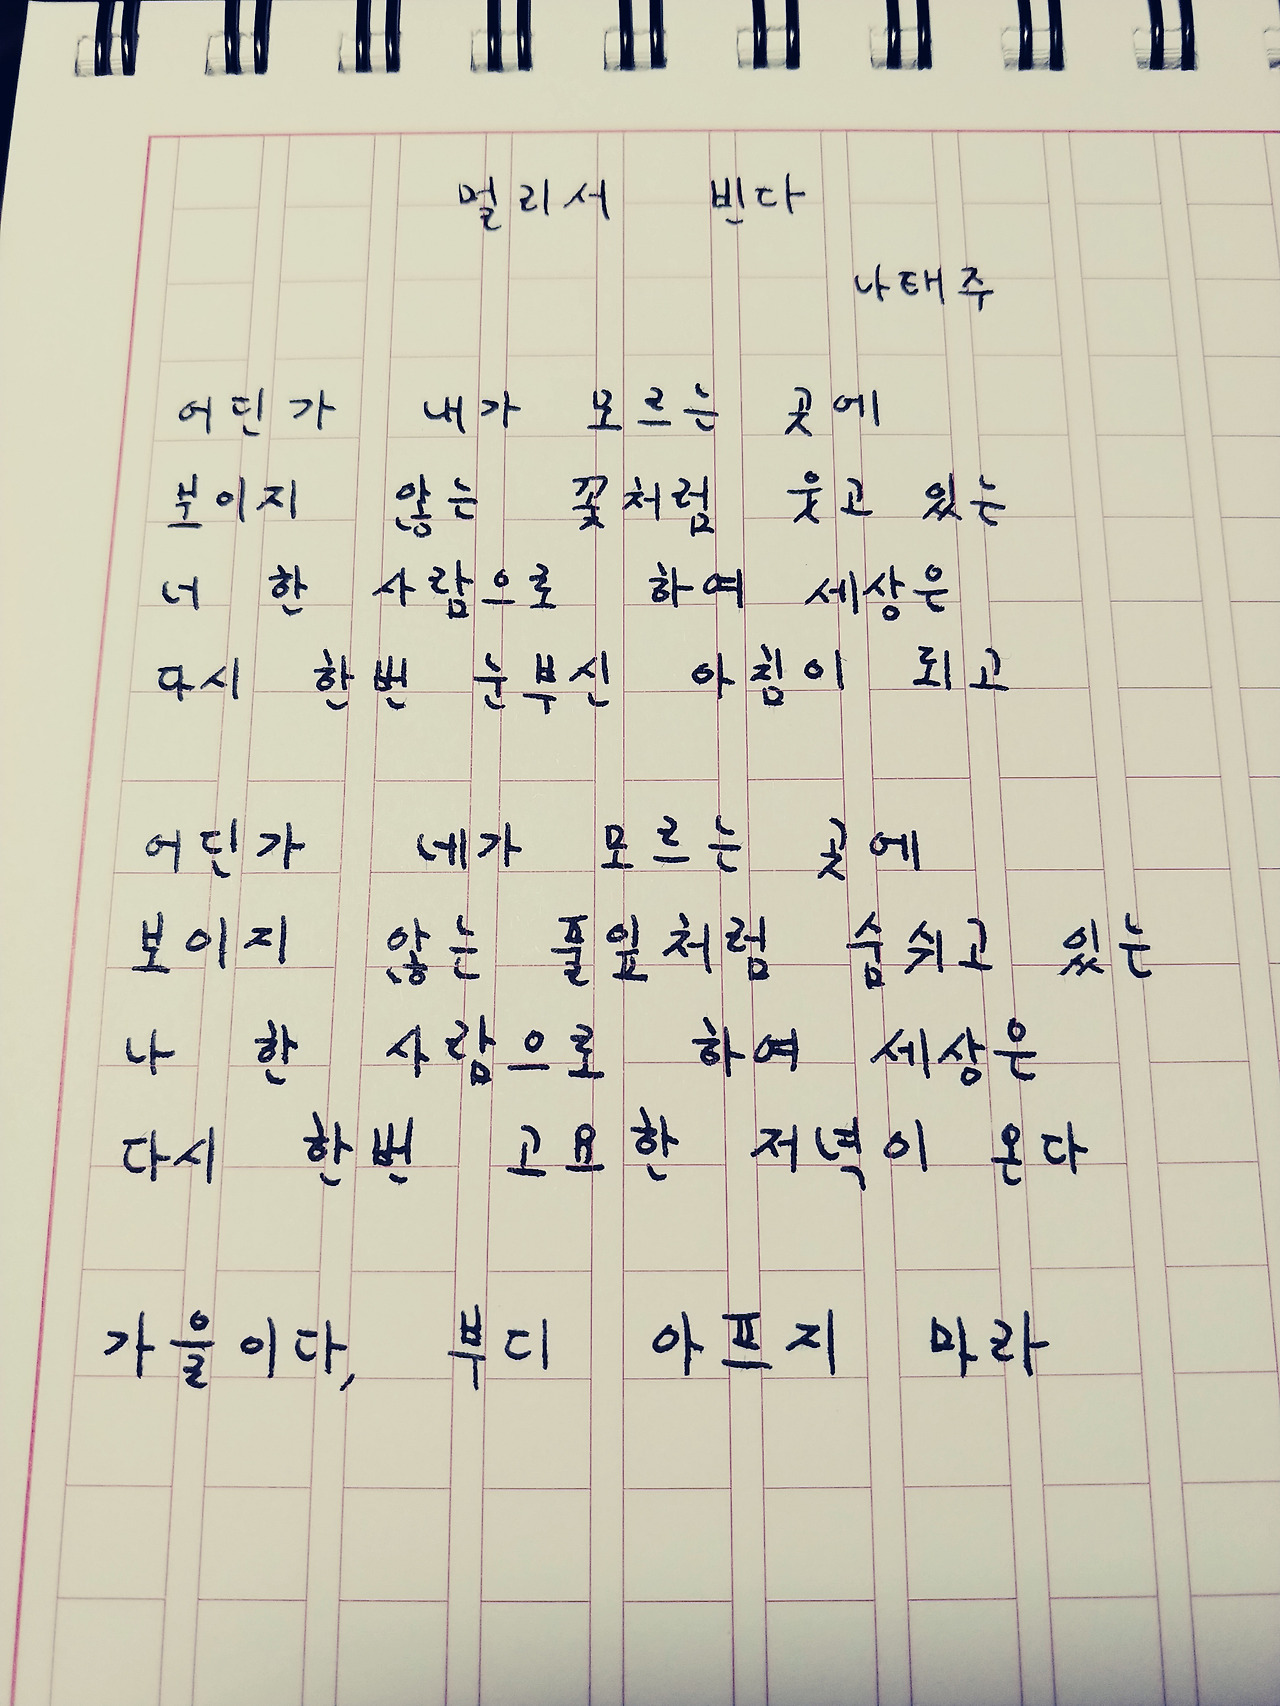 멀리서 빈다
나태주
어딘가 내가 모르는 곳에
보이지 않는 꽃처럼 웃고 있는
너 한 사람으로 하여 세상은
다시 한번 눈부신 아침이 되고
어딘가 네가 모르는 곳에
보이지 않는 풀잎처럼 숨쉬고 있는
나 한 사람으로 하여 세상은
다시 한번 고요한 저녁이 온다
가을이다, 부디 아프지 마라